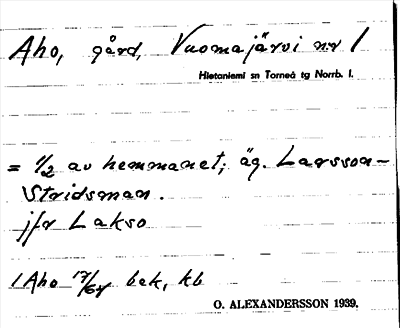 Aho, gård, Vuomajärvi nr 1
Hietaniemi sn Torneå tg Norrb. l.
= 1/2 av hemmanet; äg. Larsson-
Stridsman.
jfr Lakso
1 Aho 17/64 bek, kb
O. ALEXANDERSSON 1939.